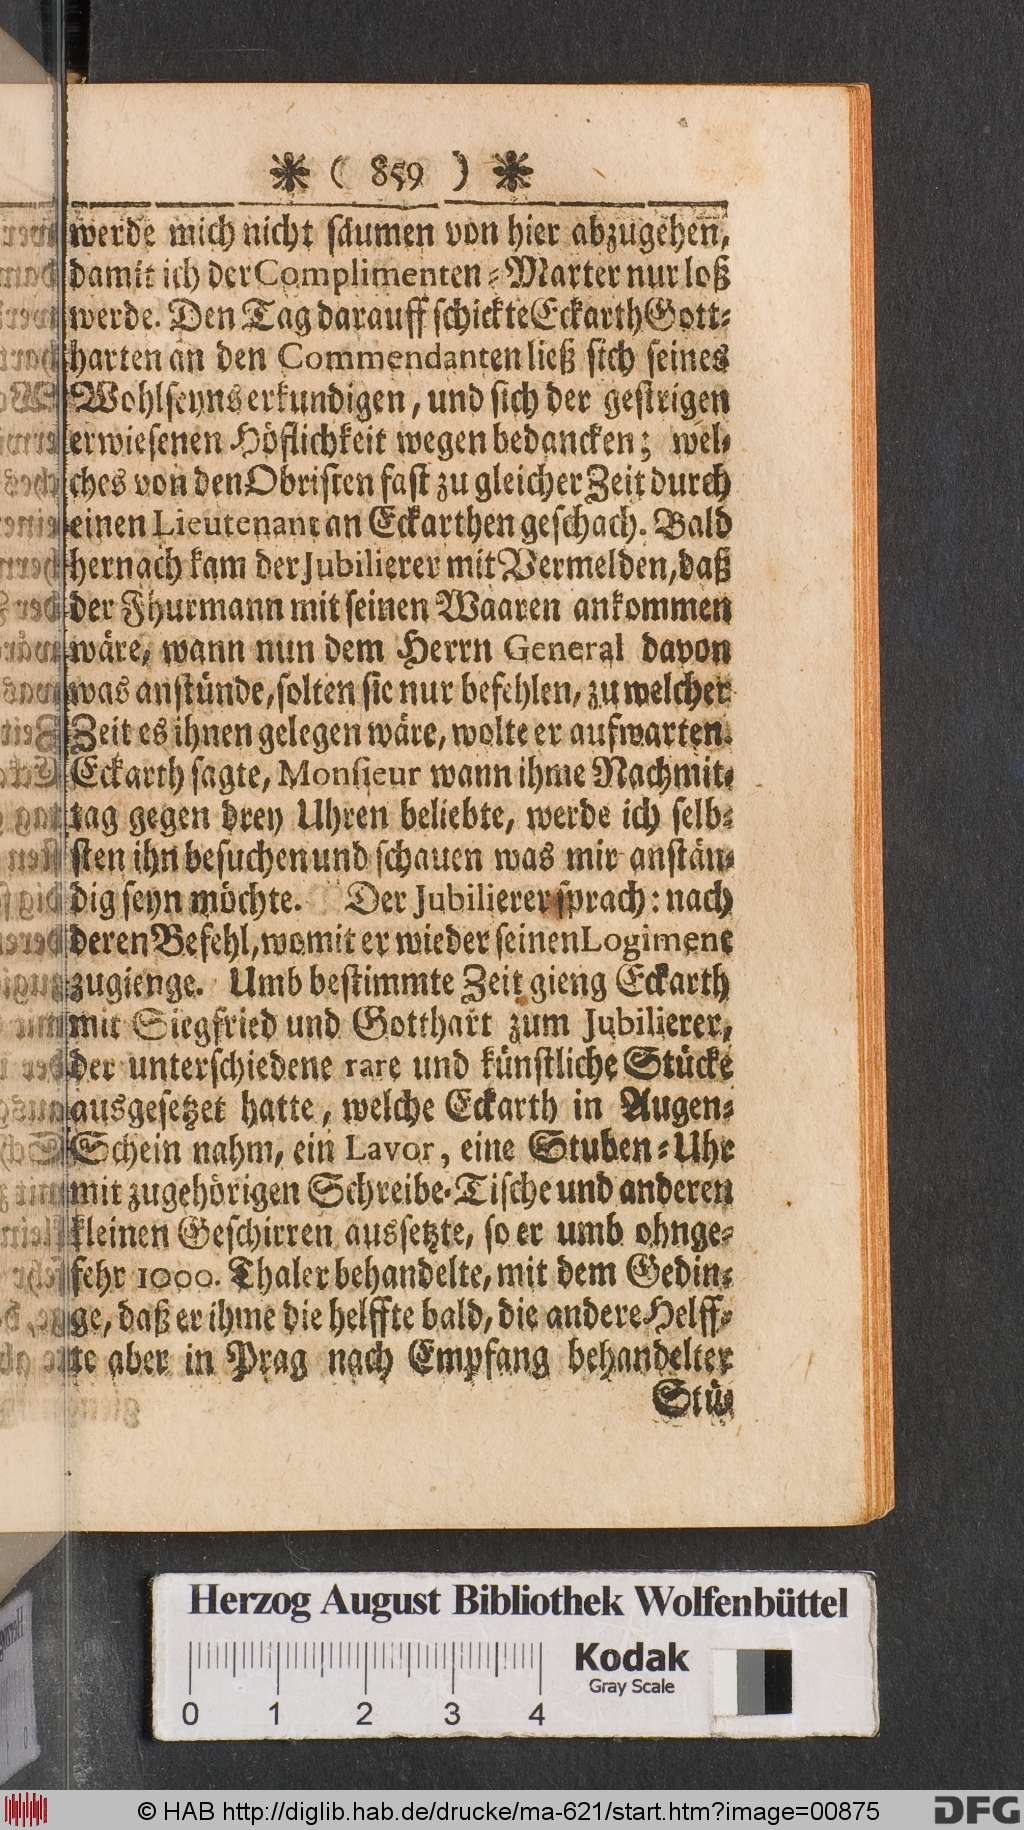 ❋ ( 859 ) ❋
werde mich nicht säumen von hier abzugehen,
damit ich der Complimenten-Marter nur loß
werde. Den Tag darauff schickte Eckarth Gott-
harten an den Commendanten ließ sich seines
Wohlseyns erkundigen, und sich der gestrigen
erwiesenen Höflichkeit wegen bedancken; wel-
ches von den Obristen fast zu gleicher Zeit durch
einen Lieutenant an Eckarthen geschach. Bald
hernach kam der Jubilierer mit Vermelden, daß
der Fhurmann mit seinen Waaren ankommen
wäre, wann nun dem Herrn General davon
was anstünde, solten sie nur befehlen, zu welcher
Zeit es ihnen gelegen wäre, wolte er aufwarten.
Eckarth sagte, Monsieur wann ihme Nachmit-
tag gegen drey Uhren beliebte, werde ich selb-
sten ihn besuchen und schauen was mir anstän-
dig seyn möchte. Der Jubilierer sprach: nach
deren Befehl, womit er wieder seinen Logiment
zugienge. Umb bestimmte Zeit gieng Eckarth
mit Siegfried und Gotthart zum Jubilierer,
der unterschiedene rare und künstliche Stücke
ausgesetzet hatte, welche Eckarth in Augen-
Schein nahm, ein Lavor, eine Stuben-Uhr
mit zugehörigen Schreibe-Tische und anderen
kleinen Geschirren aussetzte, so er umb ohnge-
fehr 1000. Thaler behandelte, mit dem Gedin-
ge, daß er ihme die helffte bald, die andere Helff-
te aber in Prag nach Empfang behandelter
Stü-
Herzog August Bibliothek Wolfenbüttel
Kodak
Gray Scale
0 1 2 3 4
© HAB http://diglib.hab.de/drucke/ma-621/start.htm?image=00875
DFG